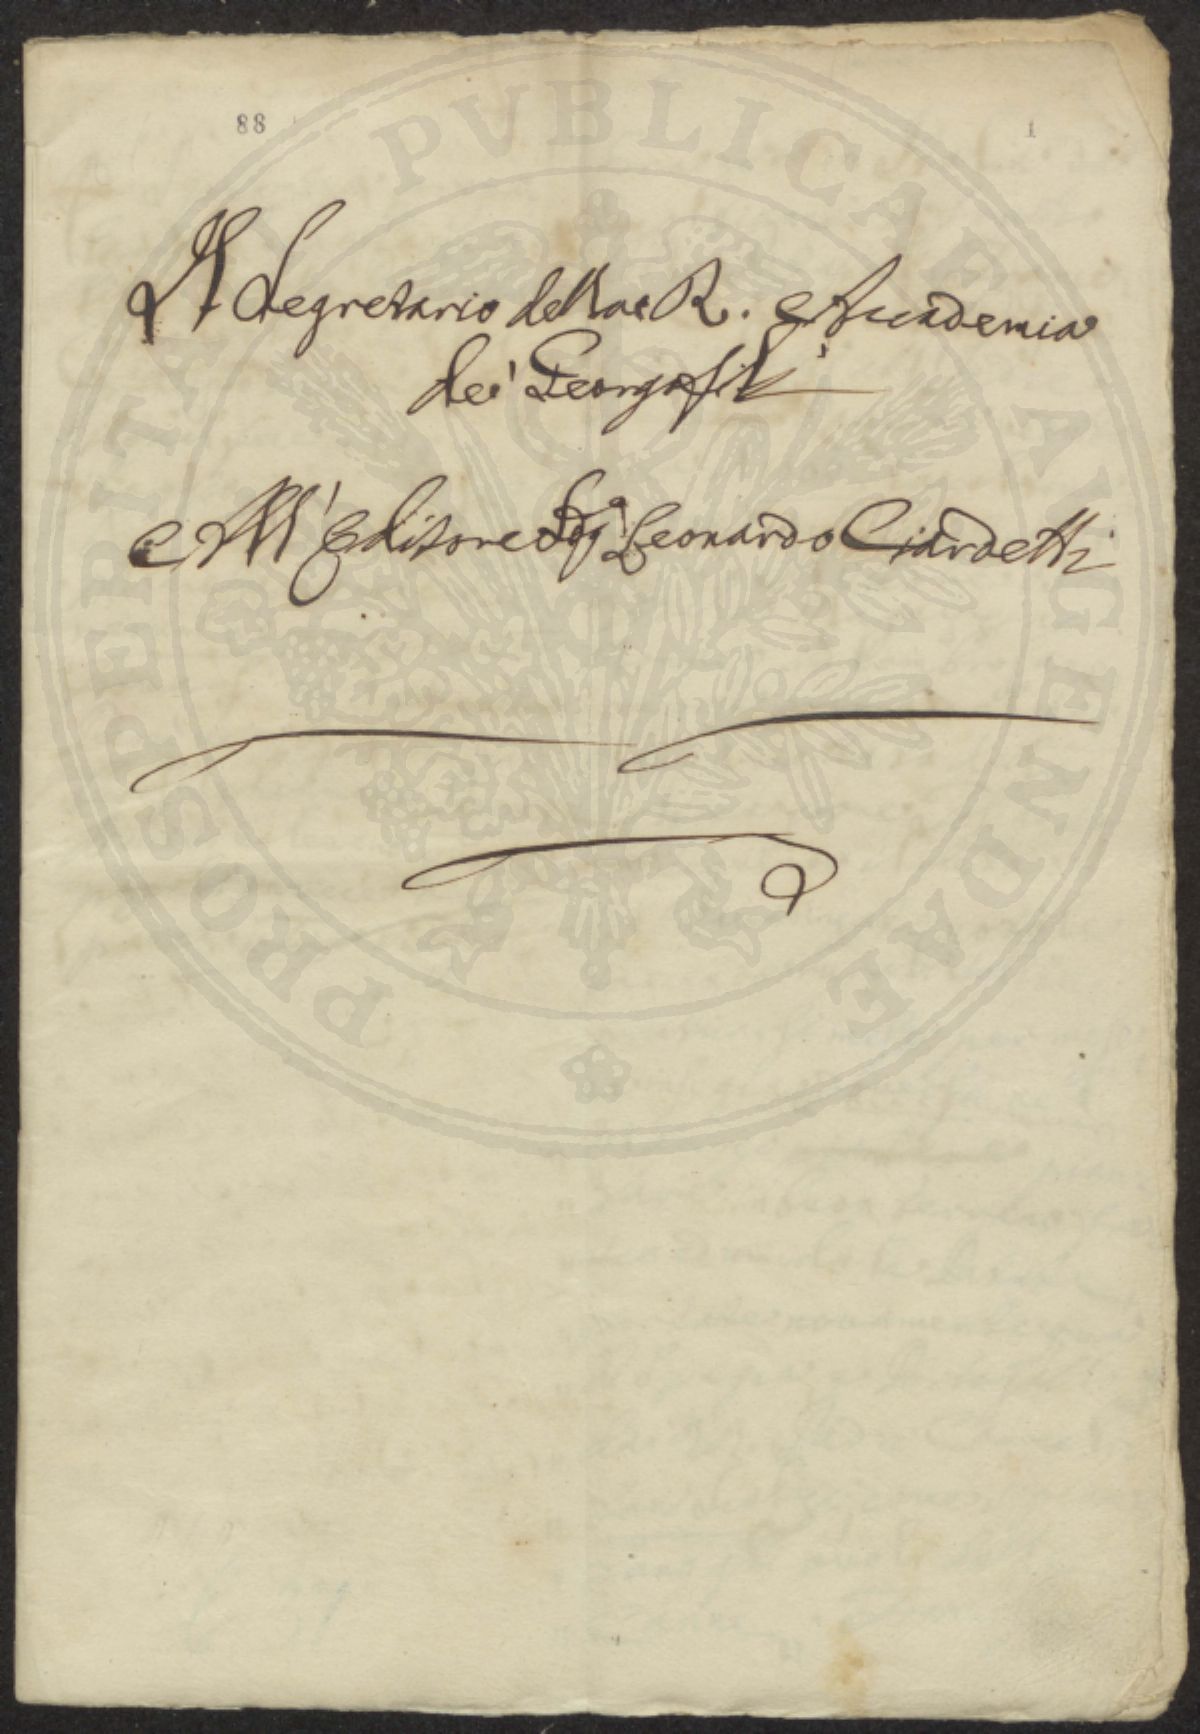 88
1
Il Segretario della R. Accademia
dei Georgofili
All' Editore Sig.r Leonardo Ciardetti
PROSPERITATI PUBLICAE AUGENDAE